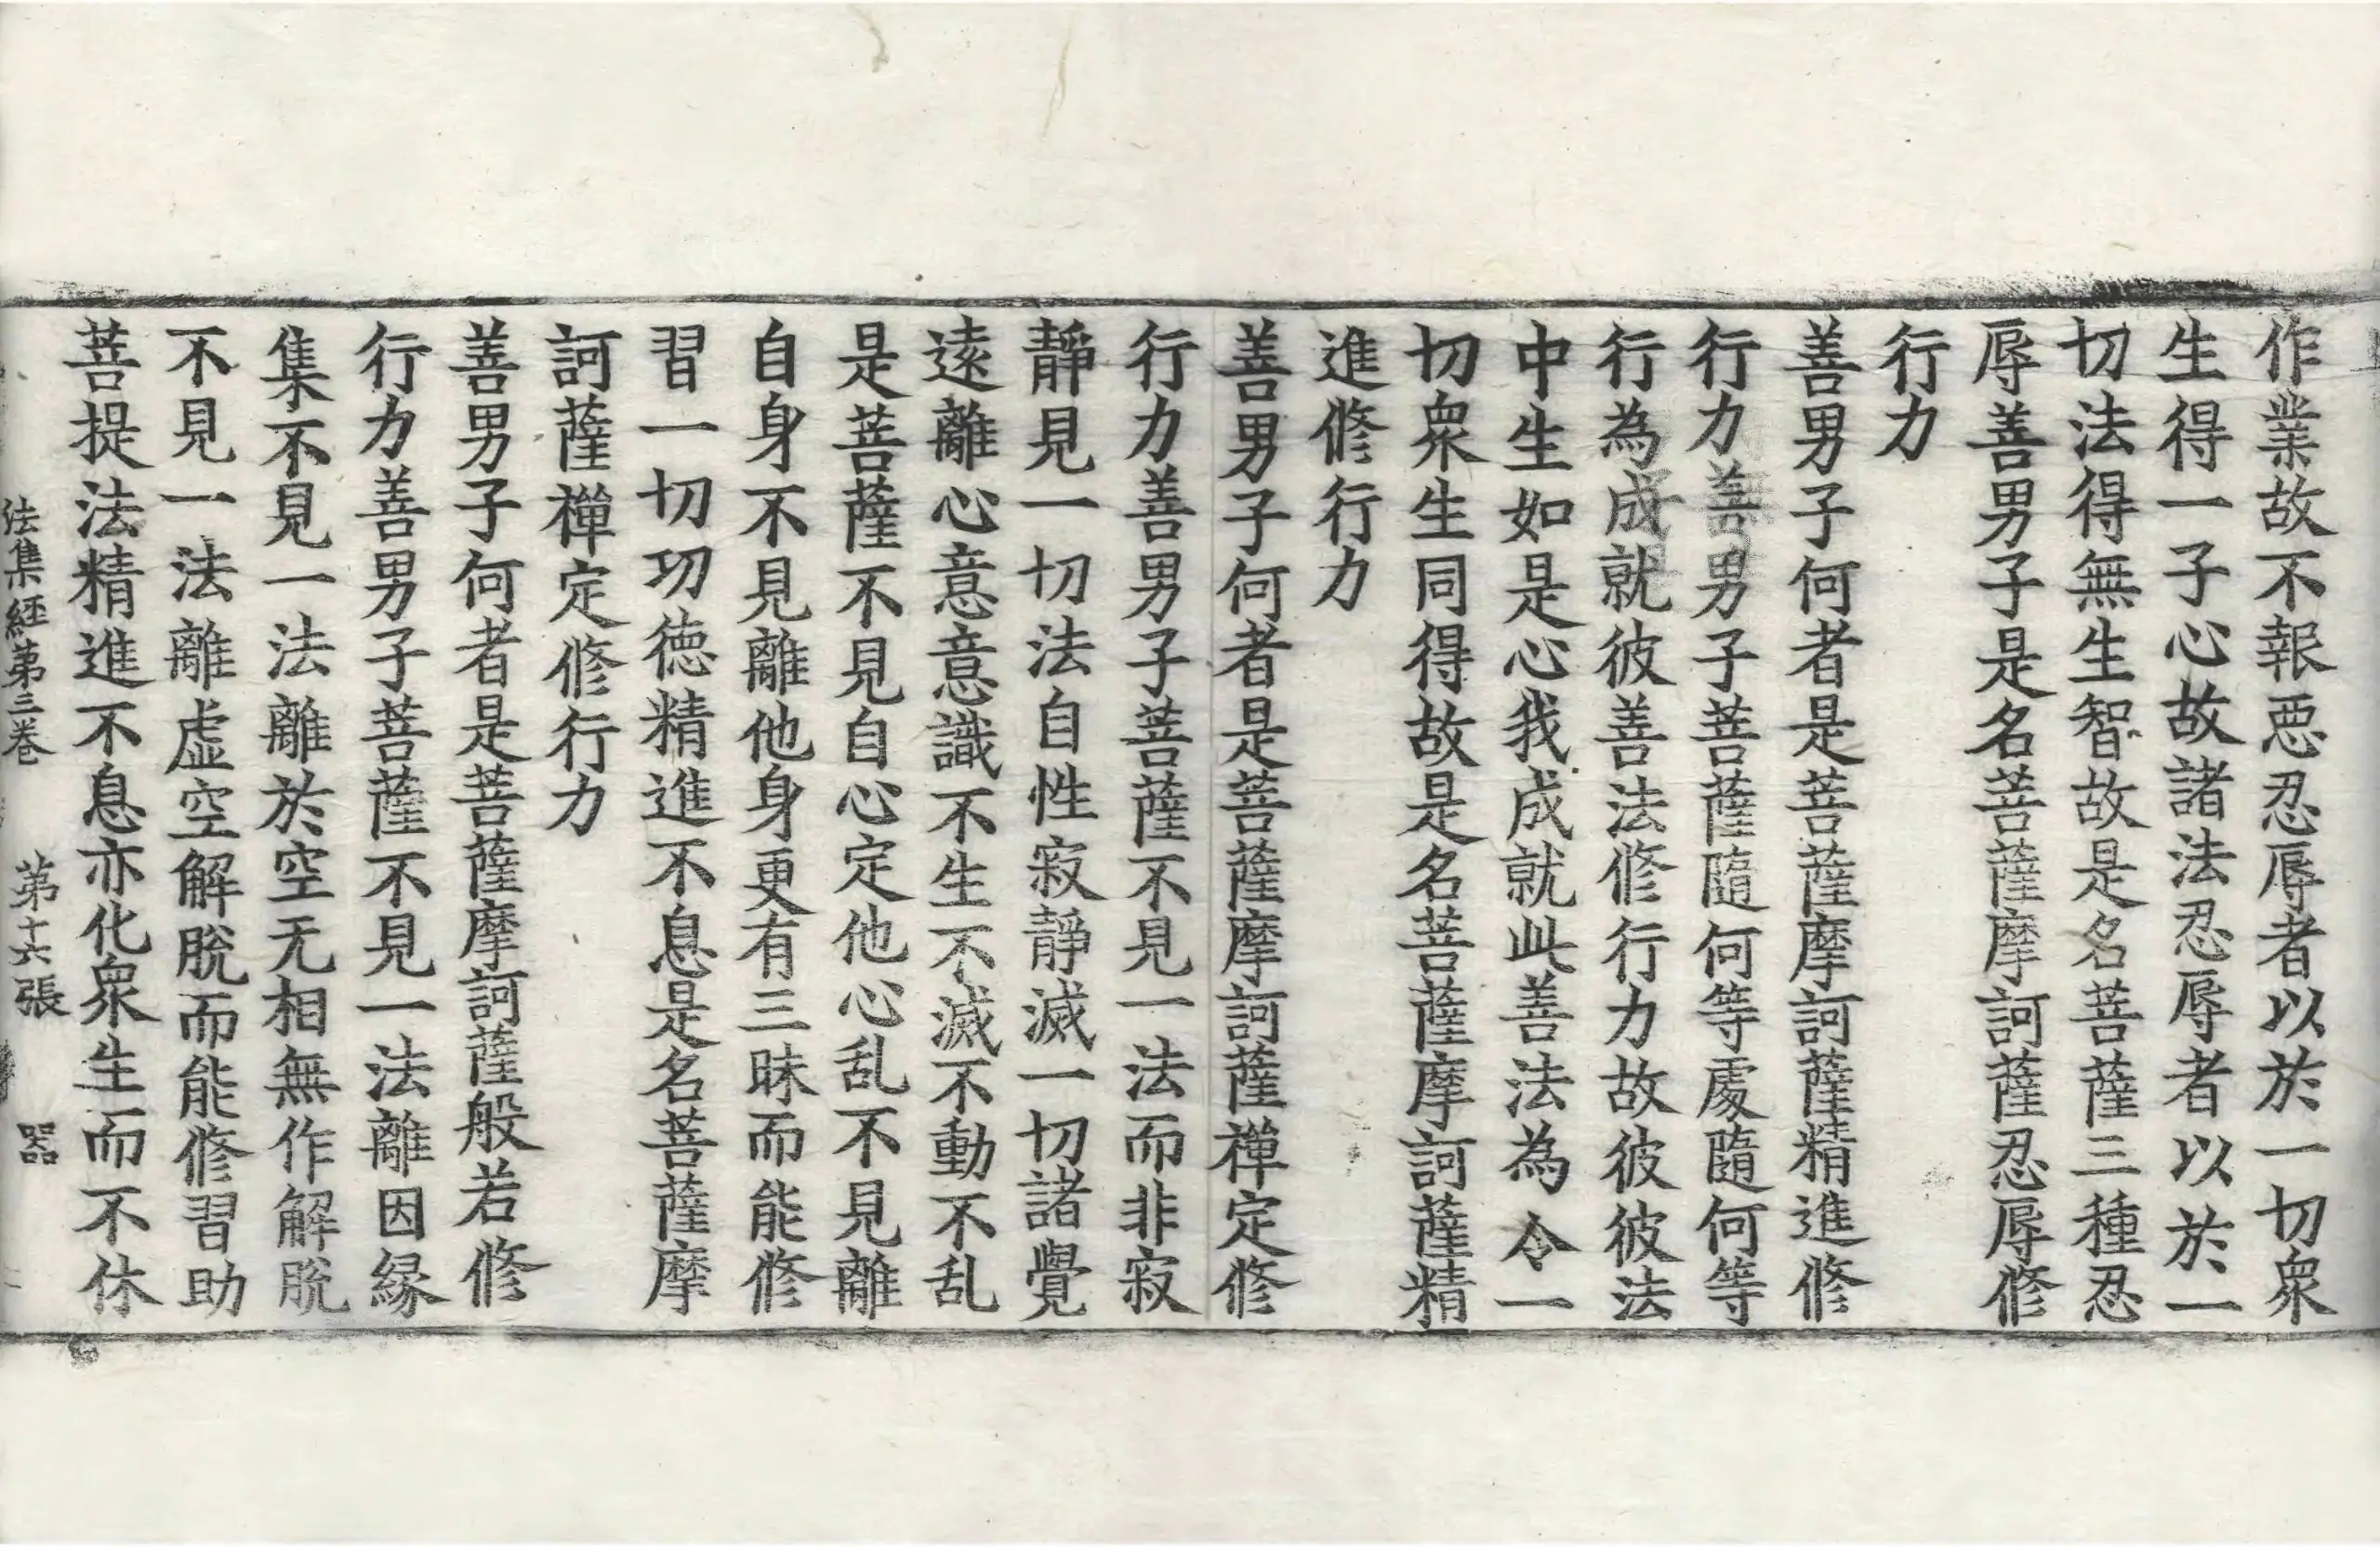 作業故不報惡忍辱者以於一切衆
生得一子心故諸法忍辱者以於一
切法得無生智故是名菩薩三種忍
辱善男子是名菩薩摩訶薩忍辱修
行力
善男子何者是菩薩摩訶薩精進修
行力善男子菩薩隨何等處隨何等
行為成就彼善法修行力故彼彼法
中生如是心我成就此善法為令一
切衆生同得故是名菩薩摩訶薩精
進修行力
善男子何者是菩薩摩訶薩禪定修
行力善男子菩薩不見一法而非寂
靜見一切法自性寂靜滅一切諸覺
遠離心意意識不生不滅不動不乱
是菩薩不見自心定他心乱不見離
自身不見離他身更有三昧而能修
習一切功德精進不息是名菩薩摩
訶薩禪定修行力
善男子何者是菩薩摩訶薩般若修
行力善男子菩薩不見一法離因緣
集不見一法離於空无相無作解脫
不見一法離虛空解脫而能修習助
菩提法精進不息亦化衆生而不休
法集經第三卷 第十六張 器